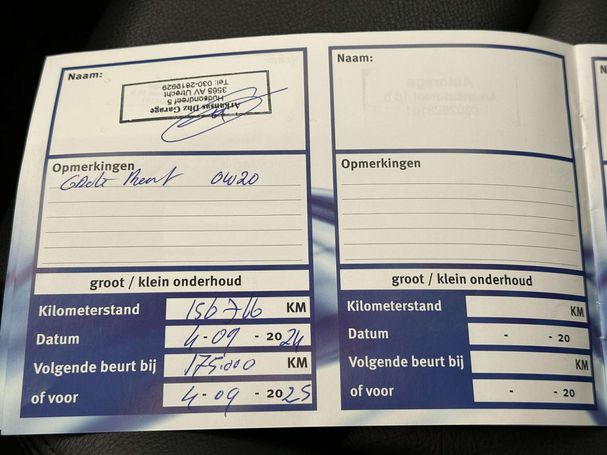 Naam:
Arkansas Dhz Garage
Hudsondreef 5
3565 AV Utrecht
Tel: 030-2619929
Opmerkingen
Grote Beurt 0W20
groot / klein onderhoud
Kilometerstand 156716 KM
Datum 4-09-2024
Volgende beurt bij 175.000 KM
of voor 4-09-2025
Naam:
Opmerkingen
groot / klein onderhoud
Kilometerstand KM
Datum - - 20
Volgende beurt bij KM
of voor - - 20